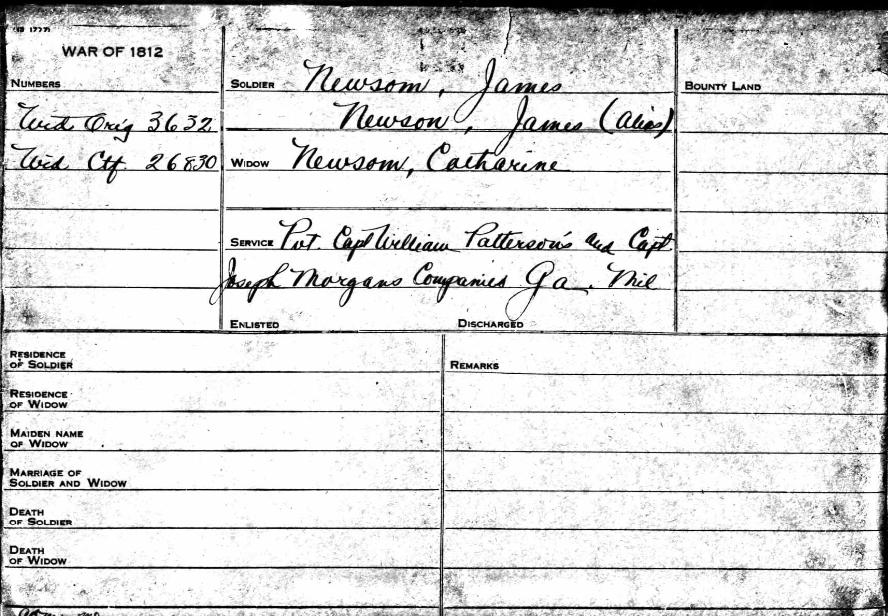 WAR OF 1812
NUMBERS
Wid Orig 3632
Wid Ctf. 26830
SOLDIER Newsom, James
Newson, James (alias)
WIDOW Newsom, Catharine
SERVICE Pvt. Capt William Patterson's and Capt
Joseph Morgans Companies Ga. Mil
ENLISTED DISCHARGED
BOUNTY LAND
RESIDENCE
OF SOLDIER
RESIDENCE
OF WIDOW
MAIDEN NAME
OF WIDOW
MARRIAGE OF
SOLDIER AND WIDOW
DEATH
OF SOLDIER
DEATH
OF WIDOW
REMARKS